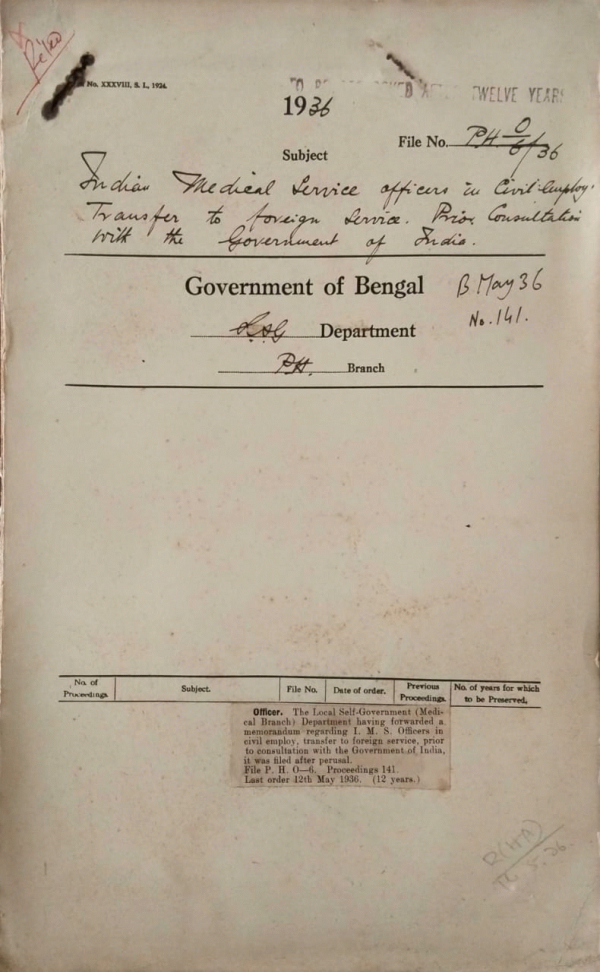 Filed
No. XXXVIII, S. I., 1924.
TO BE TWELVE YEARS
1936
File No. PH O/6/36
Subject
Indian Medical Service officers in Civil employ.
Transfer to foreign service. Prior Consultation
with the Government of India.
Government of Bengal
B May 36
No. 141.
L.S.G Department
P.H. Branch
No. of Proceedings. Subject. File No. Date of order. Previous Proceedings. No. of years for which to be Preserved.
Officer. The Local Self-Government (Medi-
cal Branch) Department having forwarded a
memorandum regarding I. M. S. Officers in
civil employ, transfer to foreign service, prior
to consultation with the Government of India,
it was filed after perusal.
File P. H. O—6. Proceedings 141.
Last order 12th May 1936. (12 years.)